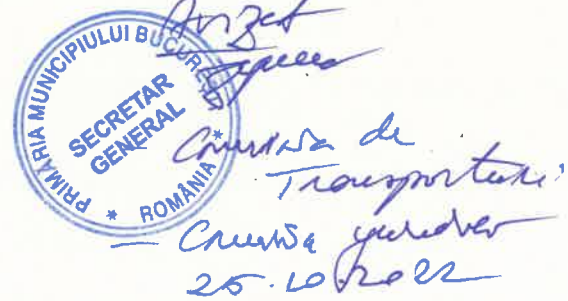 Avizat
PRIMĂRIA MUNICIPIULUI BUCUREȘTI * ROMÂNIA *
SECRETAR
GENERAL
– Comisia de
Transporturi
– Comisia juridică
25.10.2022